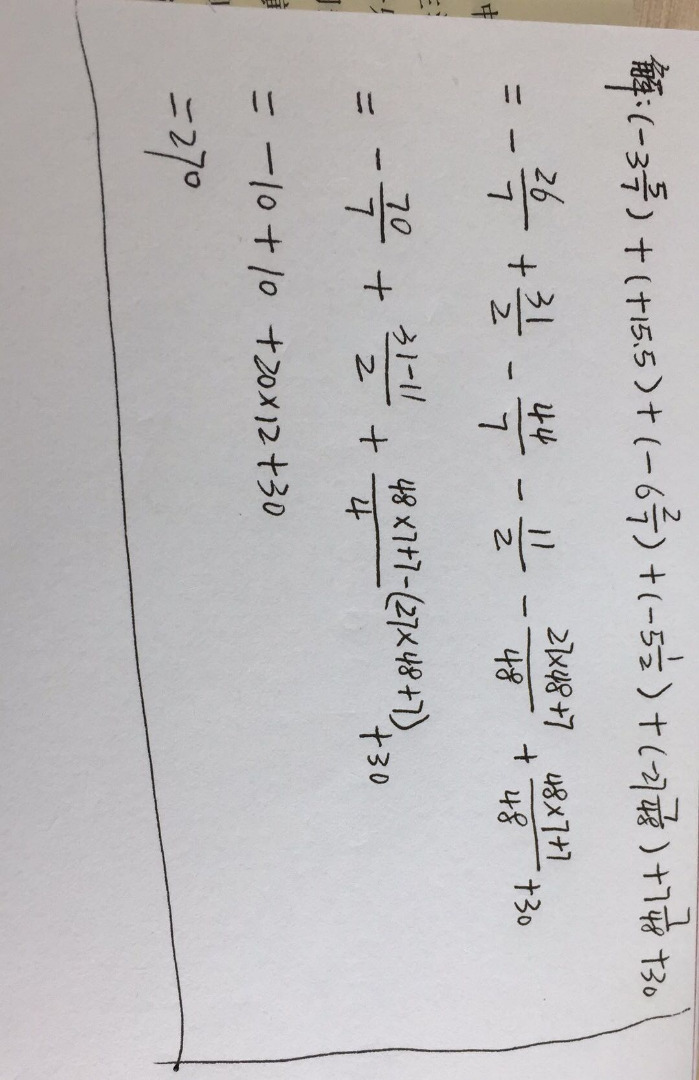 解:(-3 5/7)+(+15.5)+(-6 2/7)+(-5 1/2)+(-27 7/48)+7 7/48+30
=-26/7+31/2-44/7-11/2-(27×48+7)/48+(48×7+7)/48+30
=-70/7+(31-11)/2+(48×7+7-(27×48+7))/4+30
=-10+10+20×12+30
=270